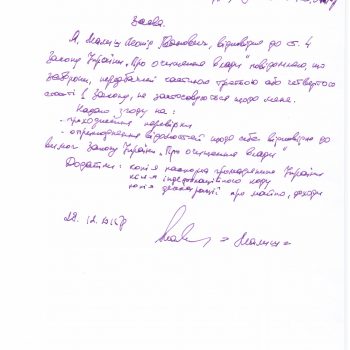 Заява.
Я, Малиш Леонід Іванович, відповідно до ст. 4
Закону України „Про очищення влади" повідомляю, що
заборони, передбачені частиною третьою або четвертою
статті 1 Закону, не застосовуються щодо мене.
Надаю згоду на:
- проходження перевірки
- оприлюднення відомостей щодо себе відповідно до
вимог Закону України „Про очищення влади"
Додатки: копія паспорта громадянина України
копія ідентифікаційного коду
копія декларації про майно, доходи